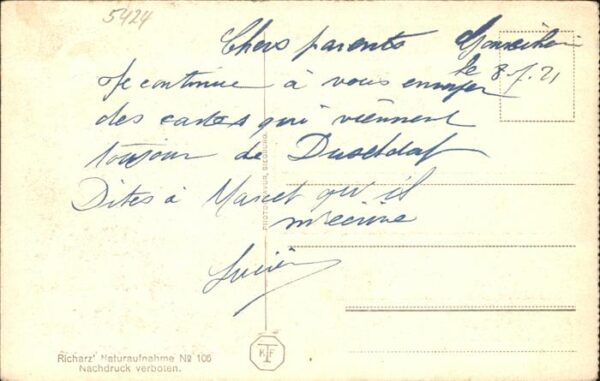 5424
Chers parents
le 8.7.21
Je continue à vous envoyer
des cartes qui viennent
toujour de Duseldorf
Dites à Marcel qu'il
m'écrive
Lucien
Richarz' Naturaufnahme № 106
Nachdruck verboten.
K T F